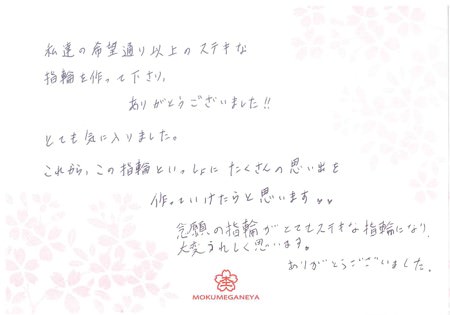 私達の希望通り以上のステキな
指輪を作って下さり、
ありがとうございました!!
とても気に入りました。
これから、この指輪といっしょにたくさんの思い出を
作っていけたらと思います♡♡
念願の指輪がとてもステキな指輪になり、
大変うれしく思います。
ありがとうございました。
MOKUMEGANEYA